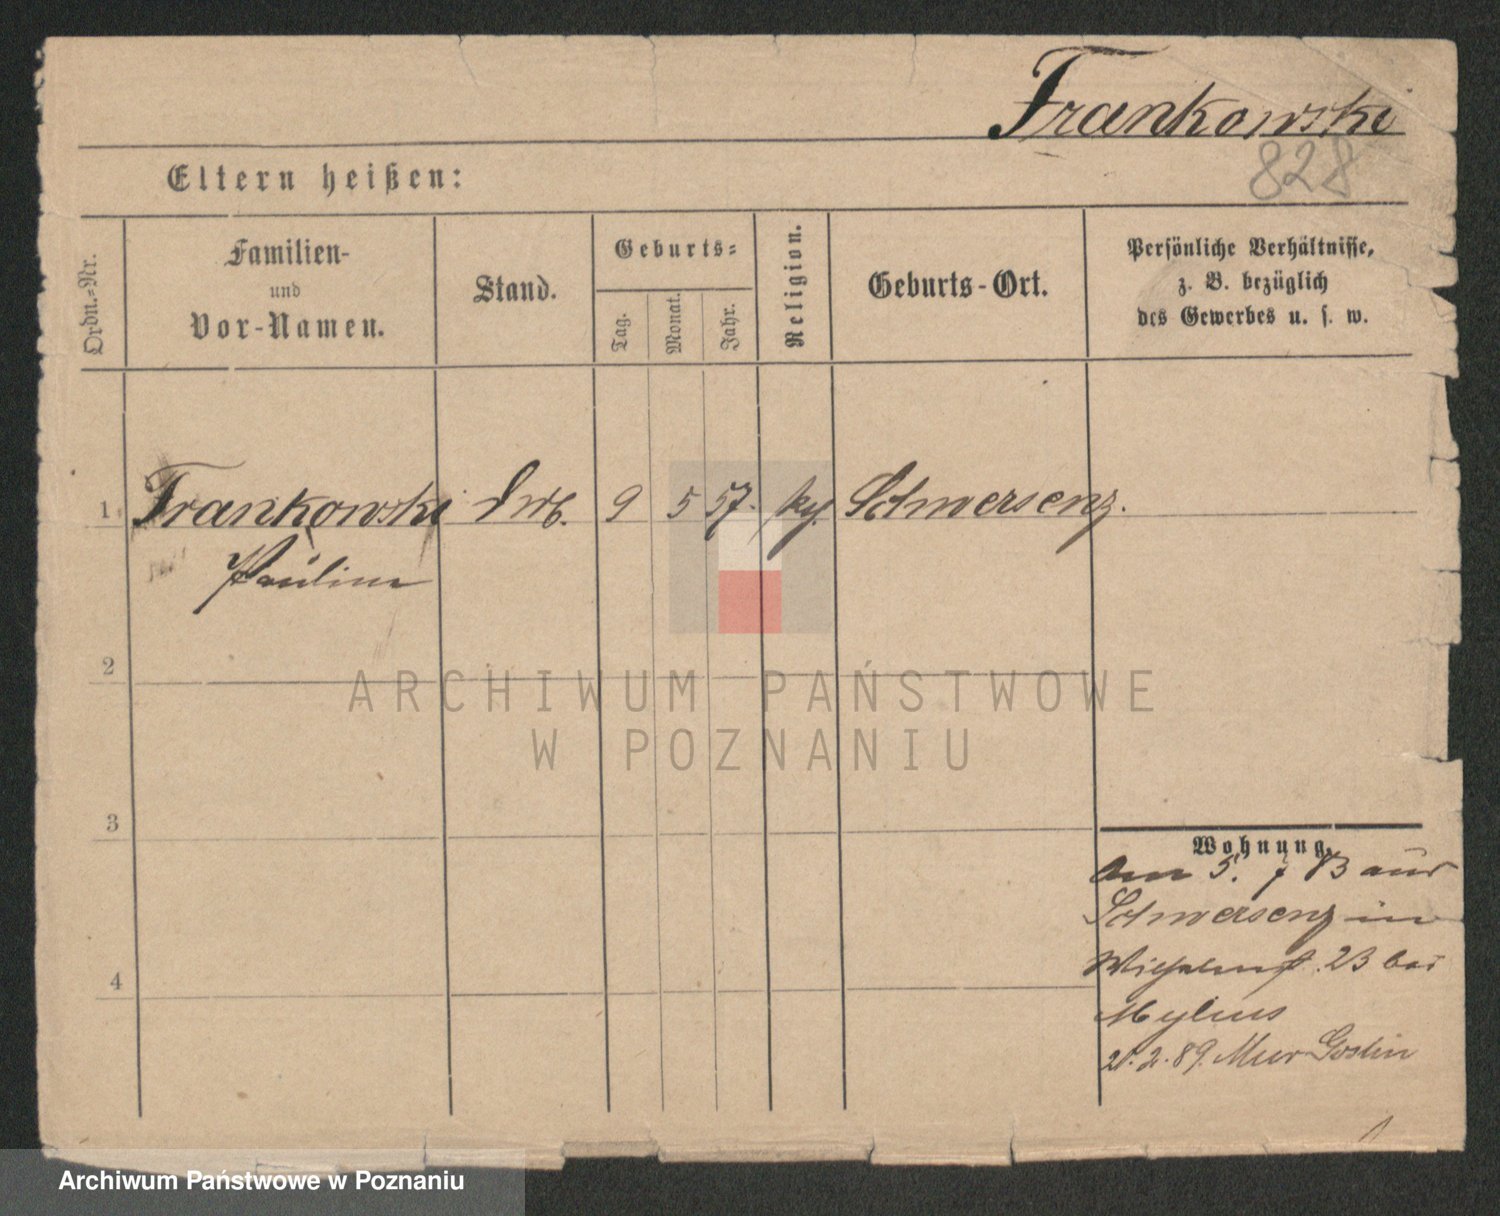 Frankowski
828
Eltern heißen:
Ordn.-Nr.
Familien-
und
Vor-Namen.
Stand.
Geburts-
Tag.
Monat.
Jahr.
Religion.
Geburts-Ort.
Persönliche Verhältnisse,
z. B. bezüglich
des Gewerbes u. s. w.
1 Frankowski 9 5 57. Schwersenz.
Pauline
2
3
4
Wohnung.
Am 5. 7 83 aus
Schwersenz in
Wilhelmst. 23 bei
Mylius
2. 89. Mur Goslin
ARCHIWUM PAŃSTWOWE
W POZNANIU
Archiwum Państwowe w Poznaniu